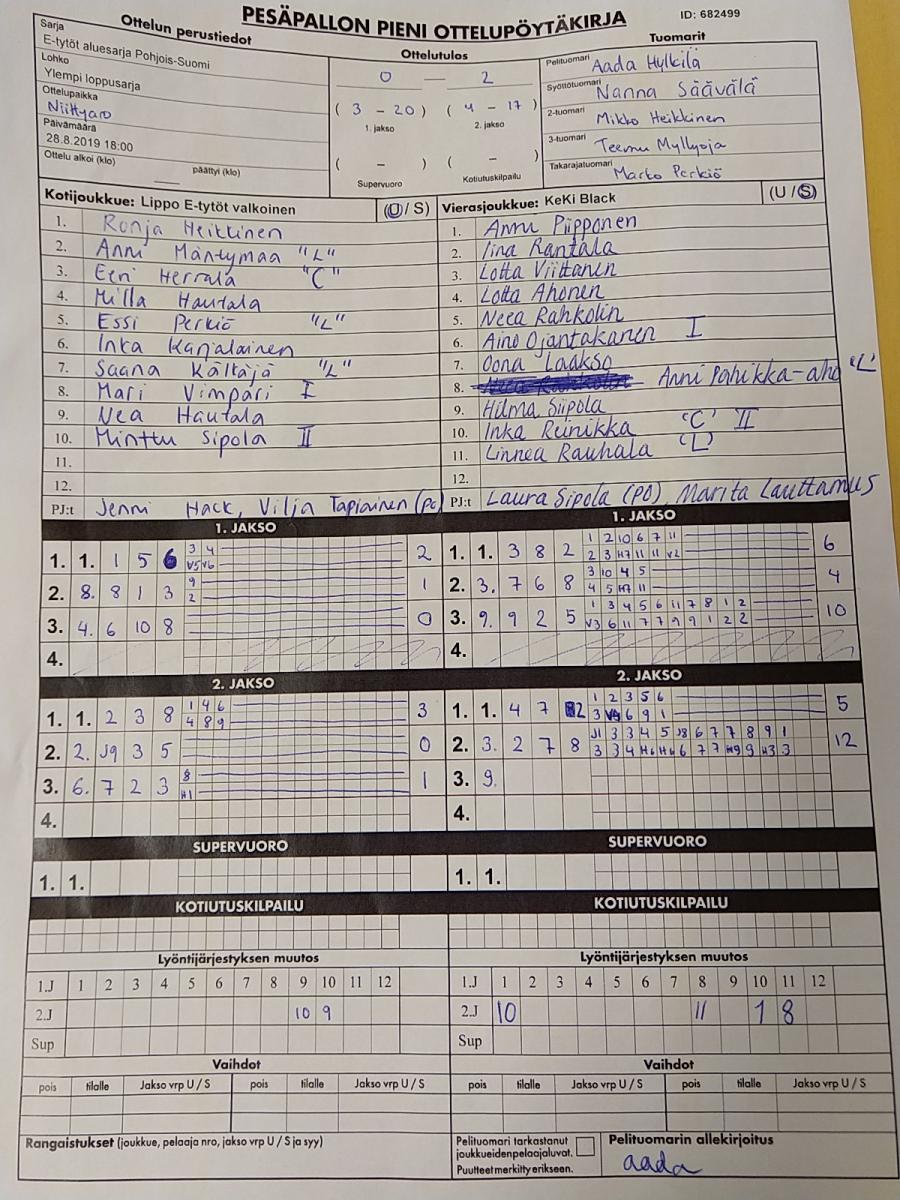 PESÄPALLON PIENI OTTELUPÖYTÄKIRJA
ID: 682499
Ottelun perustiedot
Sarja
E-tytöt aluesarja Pohjois-Suomi
Lohko
Ylempi loppusarja
Ottelupaikka
Niittyaro
Päivämäärä
28.8.2019 18:00
Ottelu alkoi (klo) päättyi (klo)
Ottelutulos
0 — 2
( 3 - 20 ) ( 4 - 17 )
1. jakso 2. jakso
( - ) ( - )
Supervuoro Kotiutuskilpailu
Tuomarit
Pelituomari Aada Hylkilä
Syöttötuomari Nanna Säävälä
2-tuomari Mikko Heikkinen
3-tuomari Teemu Myllyoja
Takarajatuomari Marko Perkiö
Kotijoukkue: Lippo E-tytöt valkoinen (U / S)
1. Ronja Heikkinen
2. Anni Mäntymaa "L"
3. Eeri Herrala "C"
4. Milla Hautala
5. Essi Perkiö "L"
6. Inka Karjalainen
7. Saana Kältäjä "L"
8. Mari Vimpari I
9. Nea Hautala
10. Minttu Sipola II
11.
12.
PJ:t Jenni Hack, Vilja Tapiainen (pc)
Vierasjoukkue: KeKi Black (U / S)
1. Annu Piipponen
2. Iina Rantala
3. Lotta Viittanen
4. Lotta Ahonen
5. Neea Rahkolin
6. Aino Ojantakanen I
7. Oona Laakso
8. Anni Pahikka-aho 'L'
9. Hilma Siipola
10. Inka Reinikka 'C' II
11. Linnea Rauhala 'L'
12.
PJ:t Laura Sipola (PO), Marita Lauttamus
1. JAKSO
1. 1. 1 5 6 3 4 2
V5 V6
2. 8. 8 1 3 9 1
2
3. 4. 6 10 8 0
4.
1. JAKSO
1. 1. 3 8 2 1 2 10 6 7 11 6
2 3 H7 11 11 V2
2. 3. 7 6 8 3 10 4 5 4
4 5 H7 11
3. 9. 9 2 5 1 3 4 5 6 11 7 8 1 2 10
V3 6 11 7 7 9 9 1 2 2
4.
2. JAKSO
1. 1. 2 3 8 1 4 6 3
4 8 9
2. 2. J9 3 5 0
3. 6. 7 2 3 8 1
H1
4.
2. JAKSO
1. 1. 4 7 2 1 2 3 5 6 5
3 V9 6 9 1
2. 3. 2 7 8 J1 3 3 4 5 J8 6 7 7 8 9 1 12
3 3 4 H6 H6 6 7 7 H9 9 H3 3
3. 9.
4.
SUPERVUORO
1. 1.
SUPERVUORO
1. 1.
KOTIUTUSKILPAILU
KOTIUTUSKILPAILU
Lyöntijärjestyksen muutos
1.J 1 2 3 4 5 6 7 8 9 10 11 12
2.J 10 9
Sup
Lyöntijärjestyksen muutos
1.J 1 2 3 4 5 6 7 8 9 10 11 12
2.J 10 11 1 8
Sup
Vaihdot
pois tilalle Jakso vrp U / S pois tilalle Jakso vrp U / S
Vaihdot
pois tilalle Jakso vrp U / S pois tilalle Jakso vrp U / S
Rangaistukset (joukkue, pelaaja nro, jakso vrp U / S ja syy)
Pelituomari tarkastanut
joukkueidenpelaajaluvat.
Puutteet merkitty erikseen.
Pelituomarin allekirjoitus
aada